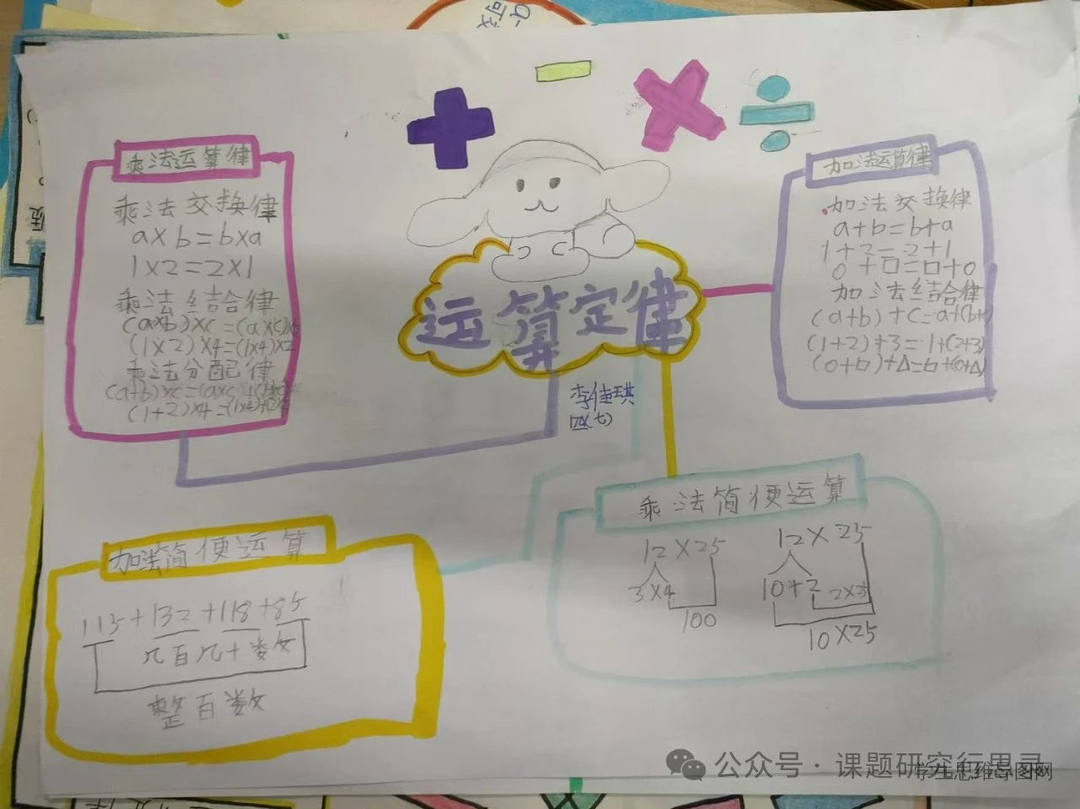 可
乘法运算律
乘法交换律
a×b=b×a
1×2=2×1
乘法结合律
(a×b)×c=(a×c)×b
(1×2)×4=(1×4)×2
乘法分配律
(a+b)×c=(a×c)+(b×c)
(1+2)×4=(1×4)+(2×4)
加法运算律
加法交换律
a+b=b+a
1+2=2+1
加法结合律
(a+b)+c=a+(b+c)
(1+2)+3=1+(2+3)
运算定律
李佳琪
四(七)
加法简便运算
115+132+118+85
几百几十 类女
整百数
乘法简便运算
12×25
3×4
100
12×25
10+2
10×25
公众号·课题研究行思录
学生思维导图网